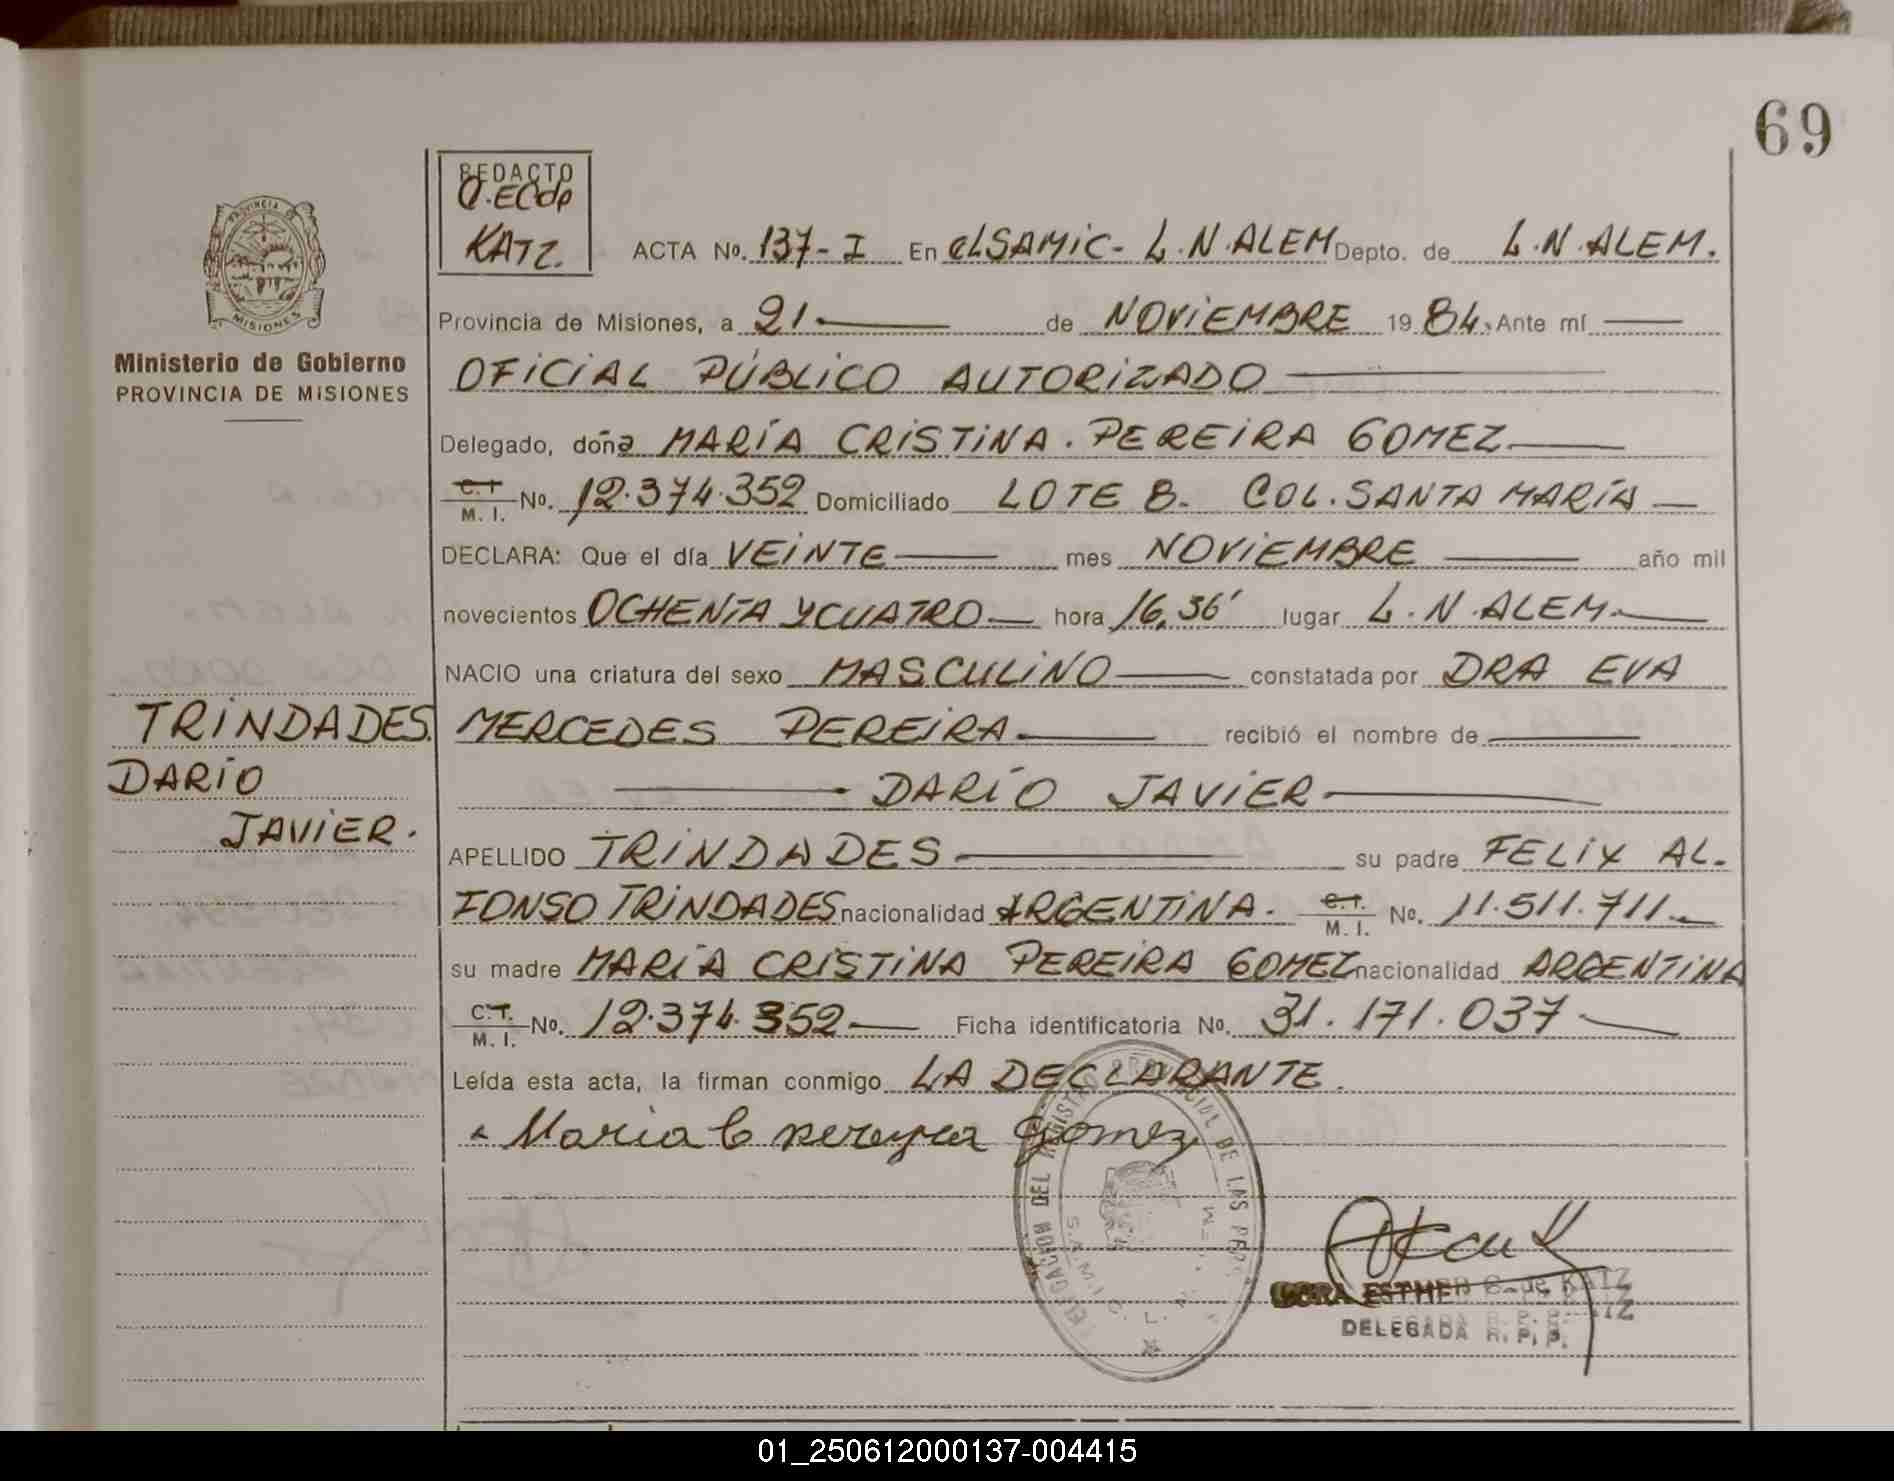 69
REDACTO
KATZ.
ACTA No. 137-I En elSAMIC- L.N.ALEM Depto. de L.N.ALEM.
PROVINCIA DE
MISIONES
Provincia de Misiones, a 21 de NOVIEMBRE 19 84. Ante mí
Ministerio de Gobierno
PROVINCIA DE MISIONES
OFICIAL PÚBLICO AUTORIZADO
Delegado, doña MARÍA CRISTINA. PEREIRA GOMEZ
C.I. M. I. No. 12.374.352 Domiciliado LOTE 8. COL. SANTA MARÍA
DECLARA: Que el día VEINTE mes NOVIEMBRE año mil
novecientos OCHENTA Y CUATRO hora 16,36' lugar L.N.ALEM.
NACIO una criatura del sexo MASCULINO constatada por DRA EVA
MERCEDES PEREIRA recibió el nombre de
DARÍO JAVIER
TRINDADES.
DARIO
JAVIER.
APELLIDO TRINDADES su padre FELIX AL-
FONSO TRINDADES nacionalidad ARGENTINA. C.I. M. I. No. 11.511.711
su madre MARIA CRISTINA PEREIRA GOMEZ nacionalidad ARGENTINA
C.I. M. I. No. 12.374.352 Ficha identificatoria No. 31.171.037
Leída esta acta, la firman conmigo LA DECLARANTE.
Maria C pereyra Gomez
DELEGACION DEL REGISTRO PROVINCIAL DE LAS
DORA ESTHER C. de KATZ
DELEGADA R. P. P.
01_250612000137-004415